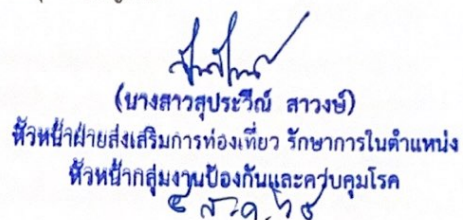 (นางสาวสุประวีณ์ สาวงษ์)
หัวหน้าฝ่ายส่งเสริมการท่องเที่ยว รักษาการในตำแหน่ง
หัวหน้ากลุ่มงานป้องกันและควบคุมโรค
ส.ค.